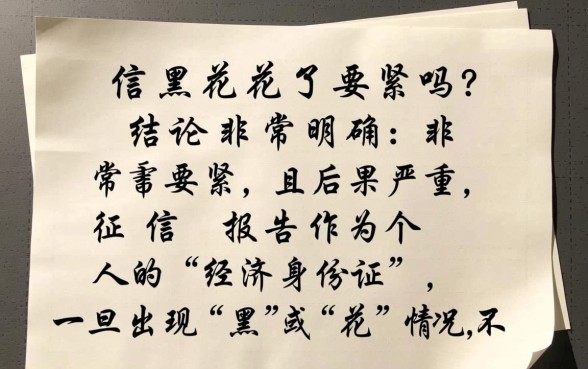 信黑花花了要紧吗?
结论非常明确：非
常需要紧，且后果严重，
征信 报告作为个
人的“经济身份证”，
一旦出现“黑”或“花”情况,不